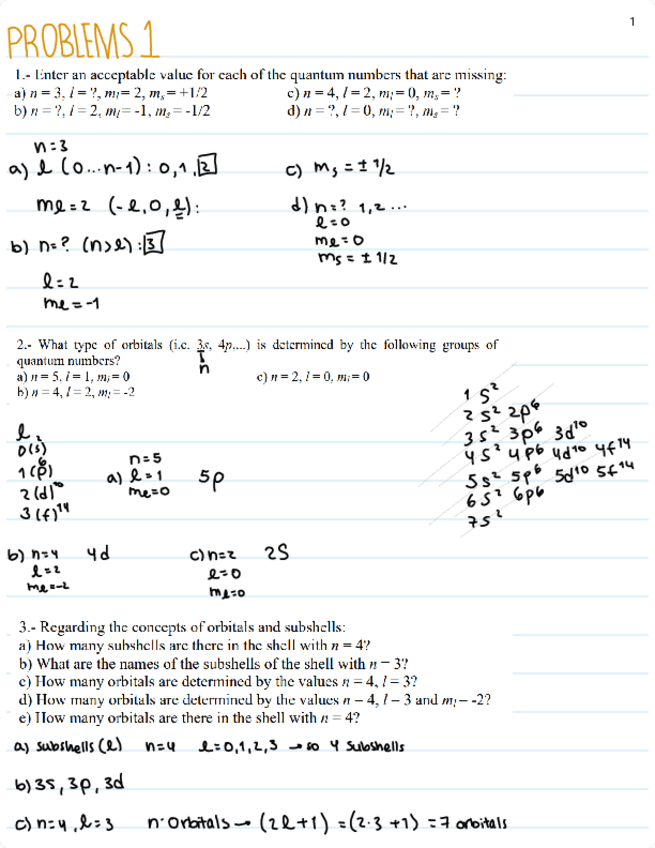 1
PROBLEMS 1
1.- Enter an acceptable value for each of the quantum numbers that are missing:
a) n = 3, l = ?, mₗ= 2, mₛ= +1/2
c) n = 4, l = 2, mₗ= 0, mₛ= ?
b) n = ?, l = 2, mₗ= -1, mₛ= -1/2
d) n = ?, l = 0, mₗ= ?, mₛ= ?
n=3
a) l (0...n-1) : 0,1,2
mℓ=2 (-l,0,l):
b) n=? (n>l) : 3
l=2
mℓ=-1
c) mₛ = ± 1/2
d) n=? 1,2...
l=0
mℓ=0
mₛ = ± 1/2
2.- What type of orbitals (i.e. 3s, 4p,...) is determined by the following groups of
quantum numbers?
n
a) n = 5, l = 1, mₗ= 0
c) n = 2, l = 0, mₗ= 0
b) n = 4, l = 2, mₗ= -2
1s²
2s² 2p⁶
3s² 3p⁶ 3d¹⁰
4s² 4p⁶ 4d¹⁰ 4f¹⁴
5s² 5p⁶ 5d¹⁰ 5f¹⁴
6s² 6p⁶
7s²
l
0(s)
1(p)
2(d)¹⁰
3(f)¹⁴
n=5
a) l=1
mℓ=0
5p
b) n=4 4d
l=2
mℓ=-2
c) n=2 2S
l=0
mℓ=0
3.- Regarding the concepts of orbitals and subshells:
a) How many subshells are there in the shell with n = 4?
b) What are the names of the subshells of the shell with n = 3?
c) How many orbitals are determined by the values n = 4, l = 3?
d) How many orbitals are determined by the values n = 4, l = 3 and mₗ= -2?
e) How many orbitals are there in the shell with n = 4?
a) subshells (l) n=4 l=0,1,2,3 → so 4 subshells
b) 3s, 3p, 3d
c) n=4, l=3 n·orbitals → (2l+1) = (2·3+1) = 7 orbitals